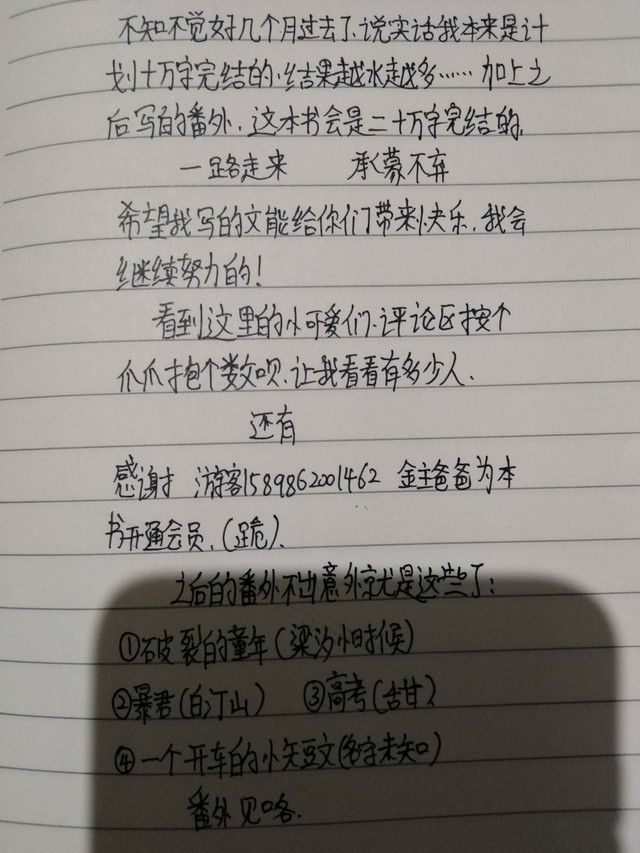 不知不觉好几个月过去了、说实话我本来是计
划十万字完结的.结果越水越多……加上之
后写的番外.这本书会是二十万字完结的,
一路走来 承蒙不弃
希望我写的文能给你们带来快乐.我会
继续努力的!
看到这里的小可爱们.评论区按个
爪爪抱个数呗.让我看看有多少人.
还有
感谢 游客1589862001462 金主爸爸为本
书开通会员.(跪).
之后的番外不出意外就是这些了:
①破裂的童年(梁汐小时候)
②暴君(白汀山) ③高考(古甘)
④一个开车的小短文(名字未知)
番外见咯.